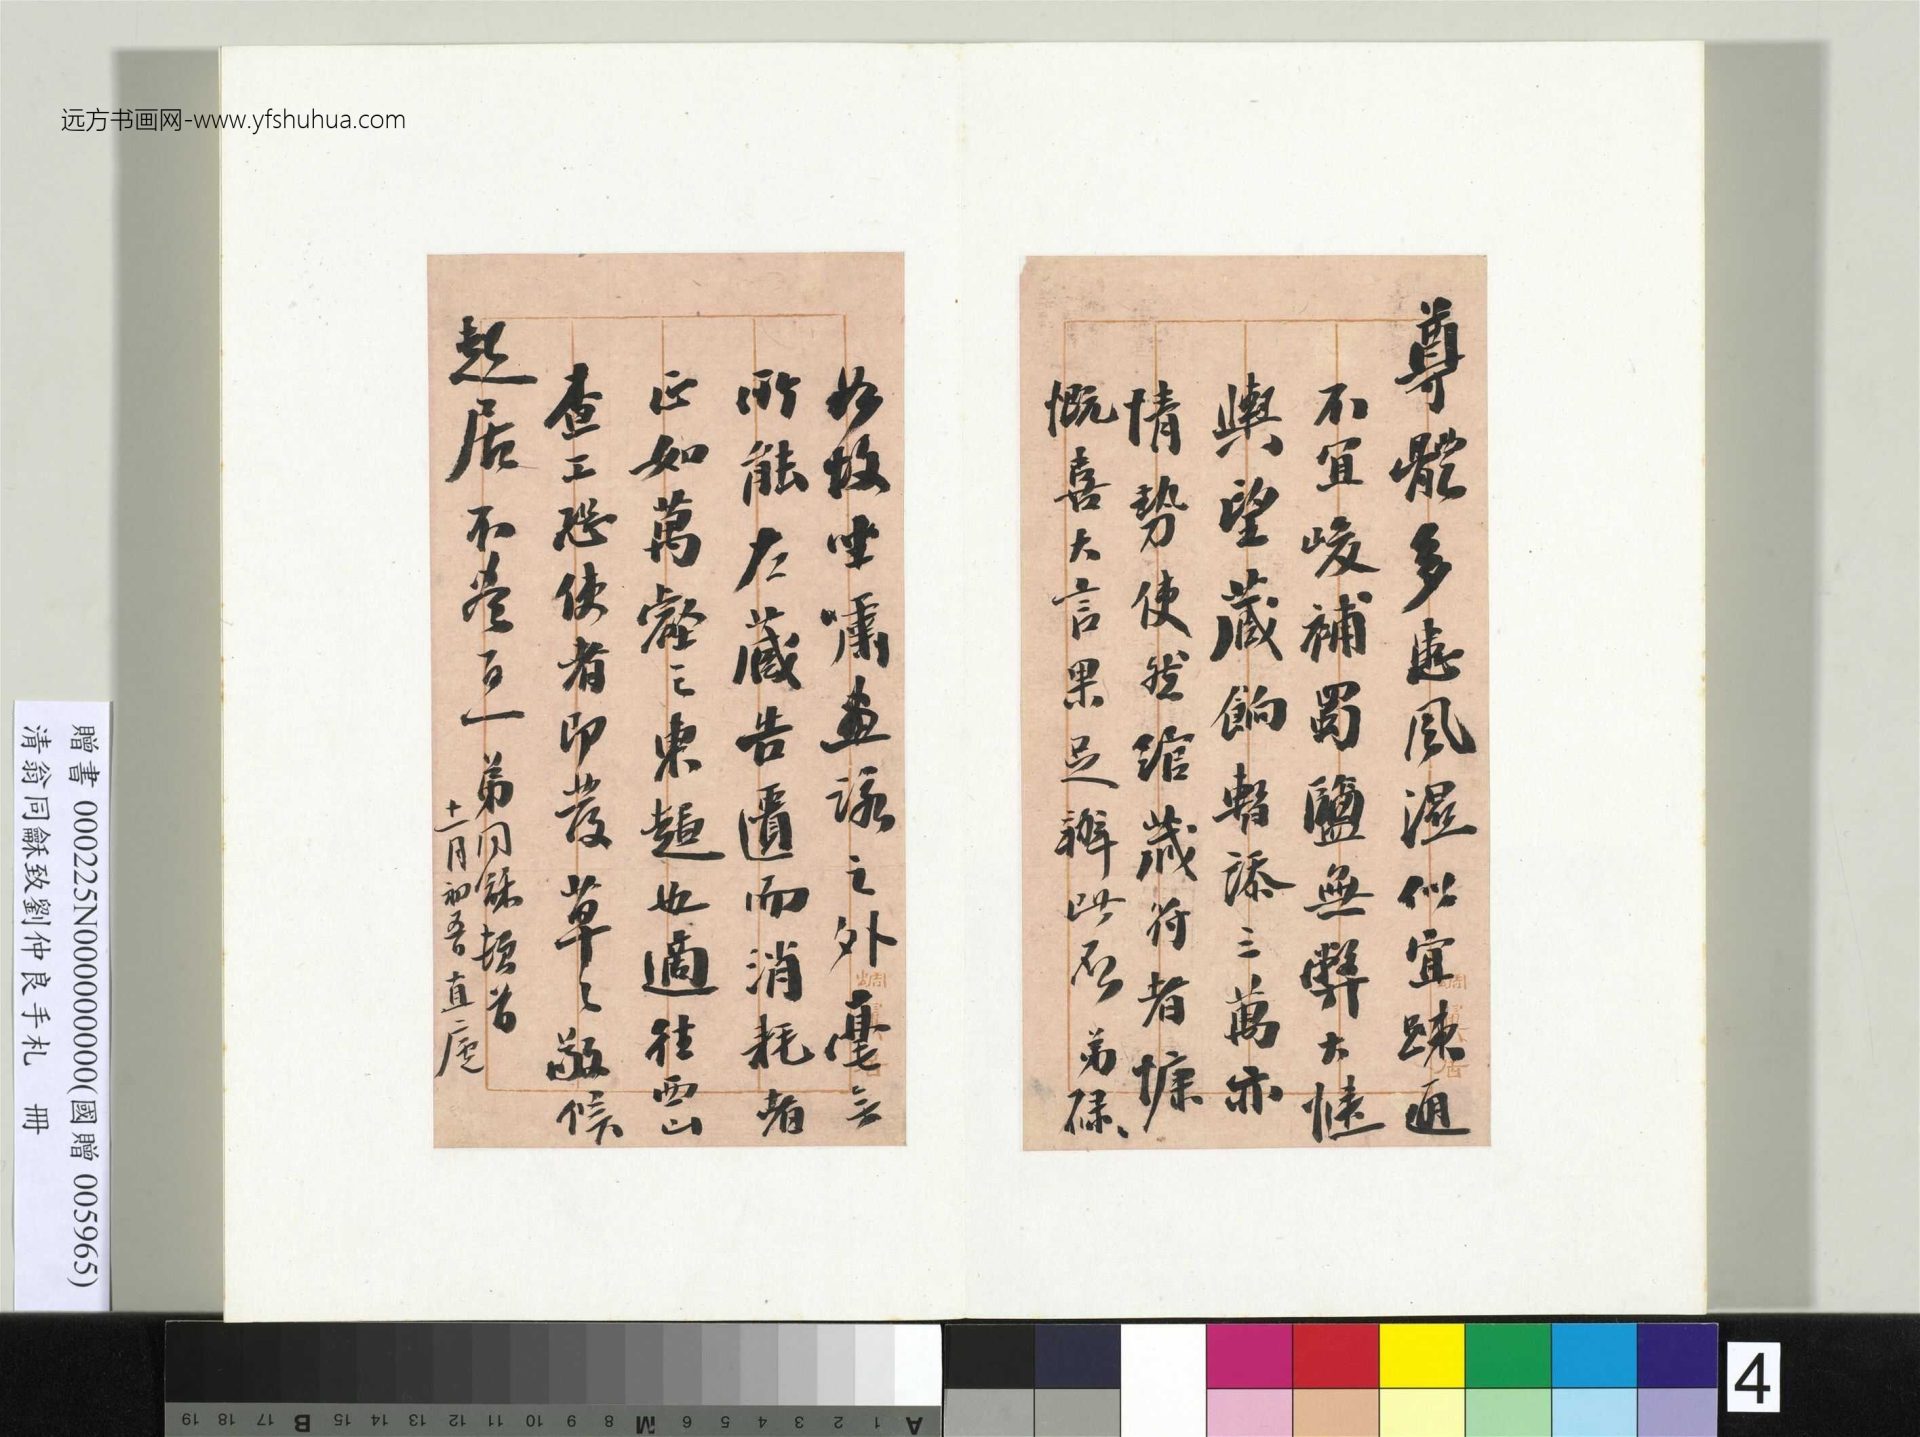 尊體多患風濕似宜疎通
不宜峻補蜀鹽無弊大愜
輿望藏餉暫添三萬亦
情勢使然綰符者慷
慨喜大言果足辦此否弟碌碌
如故坐嘯畫諾之外毫無
所能左藏告匱而消耗者
正如萬壑之東趨也適往西山
查工恐使者即發草草敬候
起居不盡百一弟同龢頓首
十一月初五日直廬
贈書 000225N000000000(國贈 005965)
清翁同龢致劉仲良手札 冊
远方书画网-www.yfshuhua.com
A 1 2 3 4 5 6 M 8 9 10 11 12 13 14 15 B 17 18 19
4